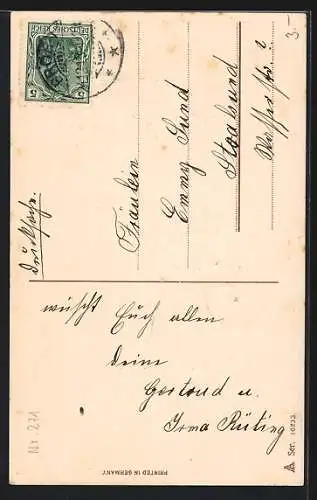 3.-
DEUTSCHES REICH
5 5
Drucksache.
Fräulein
Emmy Lund
Stralsund
wünscht Euch allen
Deine
Gertrud u.
Irma Rüting
PRINTED IN GERMANY
Ser. 10233
Nr 271